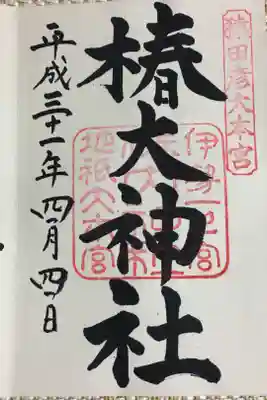 猿田彦大本宮
椿大神社
伊勢一之宮
地祇大本宮
平成三十一年四月四日